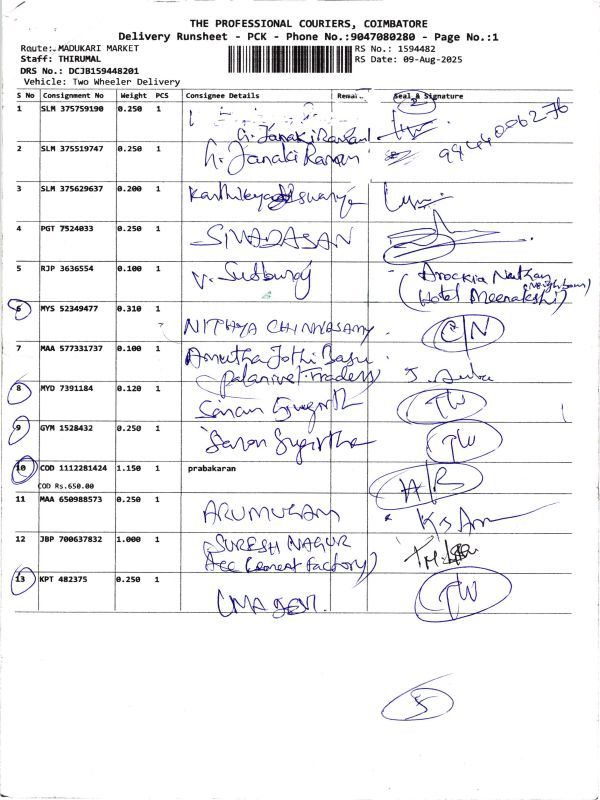 THE PROFESSIONAL COURIERS, COIMBATORE
Delivery Runsheet - PCK - Phone No.:9047080280 - Page No.:1
Route: MADUKARI MARKET
RS No.: 1594482
Staff: THIRUMAL
RS Date: 09-Aug-2025
DRS No.: DCJB159448201
Vehicle: Two Wheeler Delivery
S No Consignment No Weight PCS Consignee Details Remar.. Seal & Signature
1 SLM 375759190 0.250 1 G. Janaki Raman 9944006276
2 SLM 375519747 0.250 1 G. Janaki Raman
3 SLM 375629637 0.200 1
4 PGT 7524033 0.250 1 SIVADASAN
5 RJP 3636554 0.100 1 V. (Arockia Nathan (Neighbour)
(Hotel Meenakshi)
6 MYS 52349477 0.310 1 NITHYA CHINNASAMY C/N
7 MAA 577331737 0.100 1 Amutha Jothi Basu
Palanivel Traders
8 MYD 7391184 0.120 1 Saran TW
9 GYM 1528432 0.250 1 Saran Sugirtha TW
10 COD 1112281424 1.150 1 prabakaran A/B
COD Rs.650.00
11 MAA 650988573 0.250 1 ARUMUGAM
12 JBP 700637832 1.000 1 SURESH NAGUR
Acc Cement Factory)
13 KPT 482375 0.250 1 UMA DEVI. TW
5